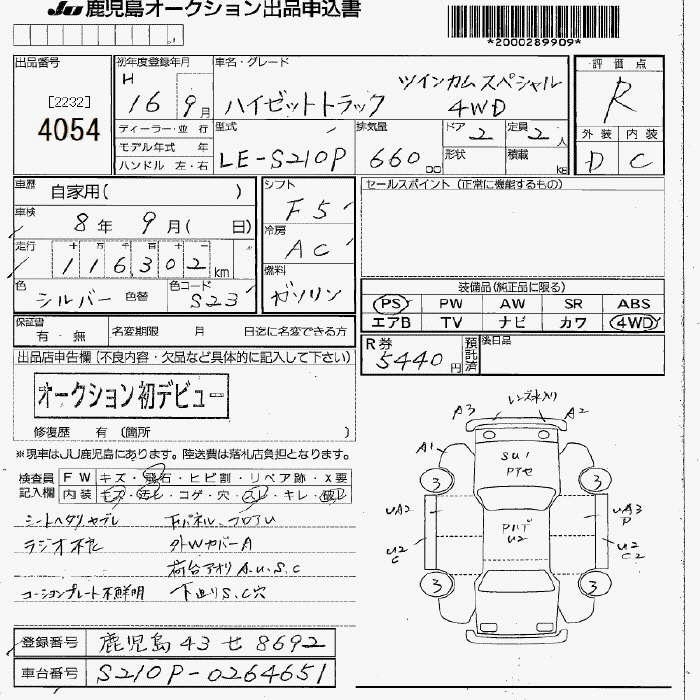 JU 鹿児島オークション出品申込書
*2000289909*
出品番号
[2232]
4054
初年度登録年月
H 16 9月
車名・グレード
ツインカム スペシャル
ハイゼットトラック 4WD
評価点
R
外装 内装
D C
ディーラー・並行
モデル年式 年
ハンドル 左・右
型式
LE-S210P
排気量
660 cc
ドア 2
定員 2 人
形状
積載 kg
車歴 自家用( )
車検 8年 9月( 日)
走行 十 万 千 百 十
116302 km
色 シルバー 色替
色コード S23
シフト F5
冷房 AC
燃料 ガソリン
セールスポイント (正常に機能するもの)
装備品(純正品に限る)
PS PW AW SR ABS
エアB TV ナビ カワ 4WD
保証書 有・無
名変期限 月 日迄に名変できる方
R券 5440円
預託済
後日品
出品店申告欄(不良内容・欠品など具体的に記入して下さい)
オークション初デビュー
修復歴 有 (箇所 )
※現車はJU鹿児島にあります。陸送費は落札店負担となります。
検査員記入欄
FW キズ・飛石・ヒビ割・リペア跡・X要
内装 キズ・汚レ・コゲ・穴・スレ・キレ・破レ
シートヘタリヤブレ
ラジオ不允
コーションプレート不鮮明
下パネル、フロアU
外Wカバー A
荷台アオリ A.U.S.C
下廻りS.C穴
レンズ水入り
A3 A2
A1
SU1
3 3
UA2
UA3
P
U2
C
U2
C2
U2
3 3
登録番号 鹿児島 43 せ 8692
車台番号 S210P-0264651